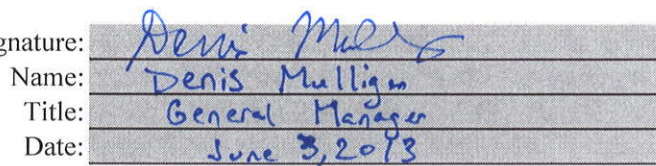 gnature: Denis Mull
Name: Denis Mulligan
Title: General Manager
Date: June 3, 2013